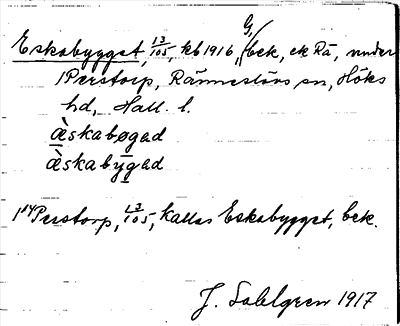 Eskabygget, 13/105, kb 1916, G/bek, ek Rä, under
1 Perstorp, Ränneslövs sn, Höks
hd, Hall. l.
æ̀skabøgəd
æ̀skabygəd
1¹⁴Perstorp, 13/105, kallas Eskabygget, bek.
J. Sahlgren 1917